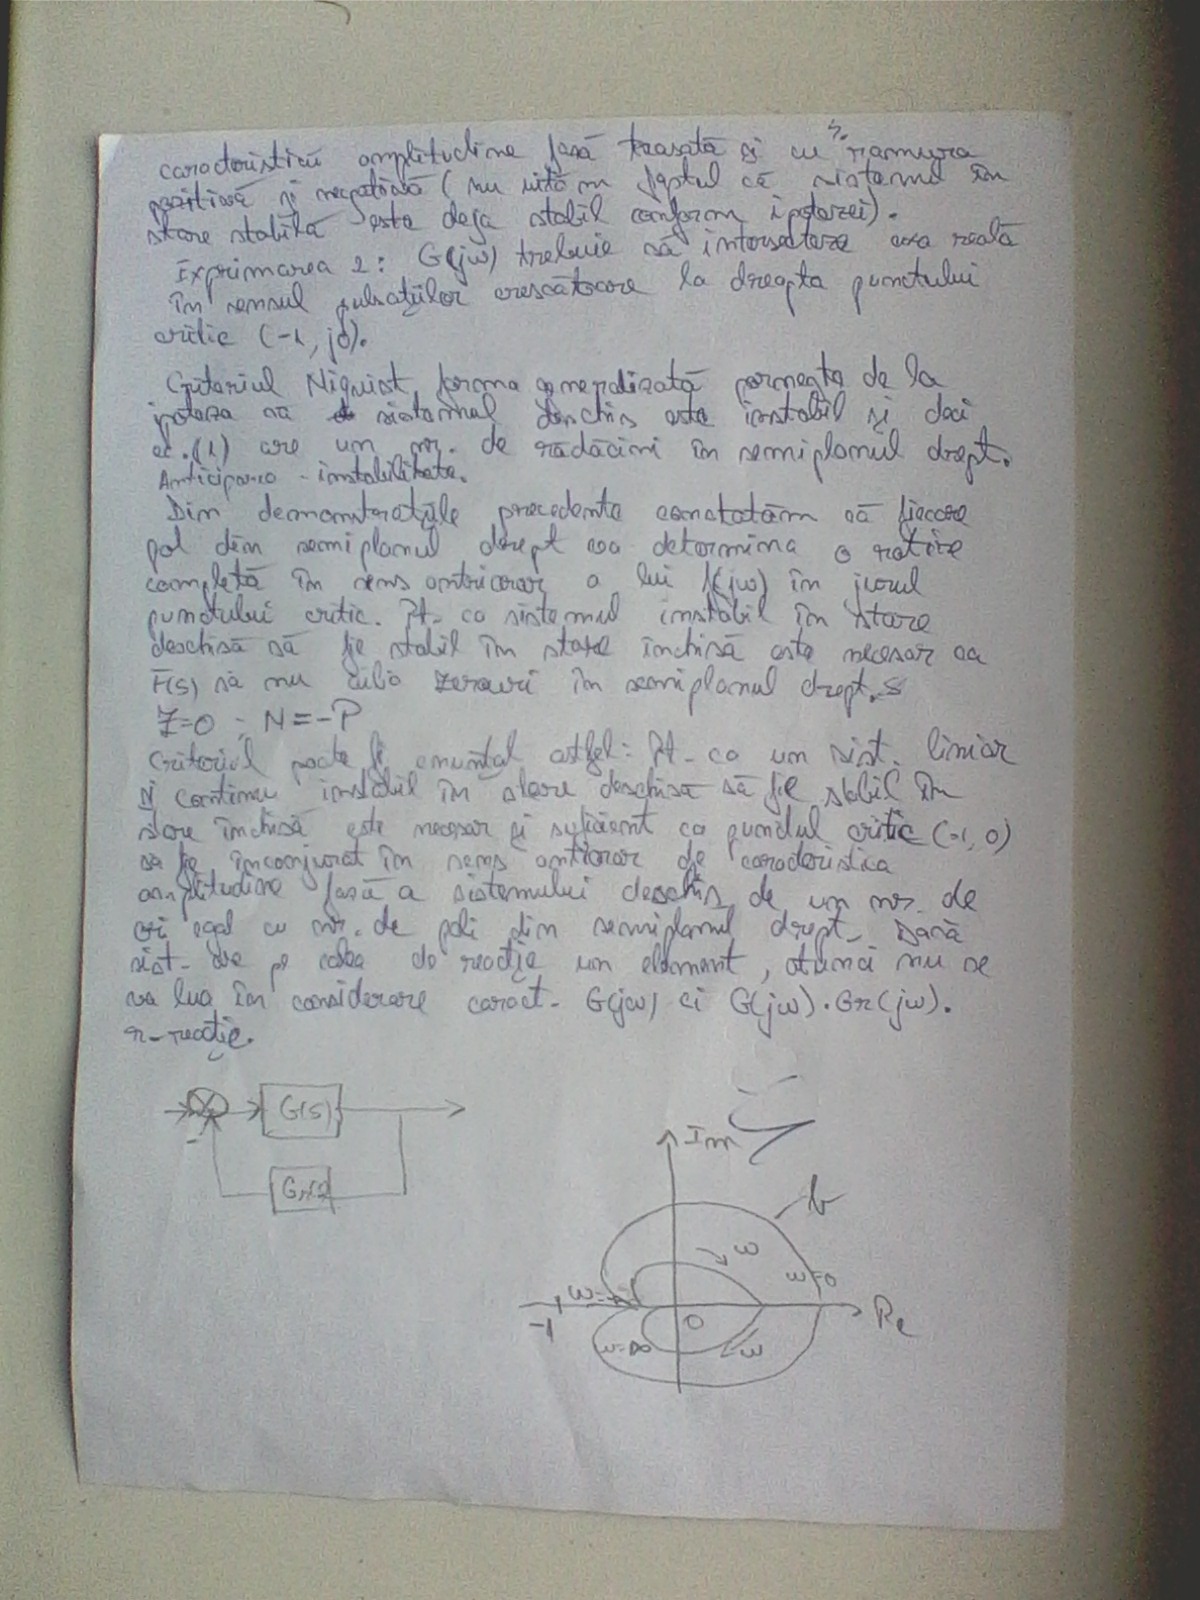 caracteristicii amplitudine fază trasată și cu ramura
pozitivă și negativă (nu uităm faptul că sistemul în
stare stabilă este deja stabil conform ipotezei).
Exprimarea 2: G(jω) trebuie să intersecteze axa reală
în sensul pulsațiilor crescătoare la dreapta punctului
critic (-1, j0).
Criteriul Niquist forma generalizată pornește de la
ipoteza că sistemul deschis este instabil și deci
ec. (1) are un nr. de rădăcini în semiplanul drept.
- instabilitate.
Din demonstrațiile precedente constatăm că fiecare
pol din semiplanul drept va determina o rotire
completă în sens antiorar a lui (jω) în jurul
punctului critic. Pt. ca sistemul instabil în stare
deschisă să fie stabil în stare închisă este necesar ca
F(s) să nu aibă zerouri în semiplanul drept. s
Z=0 ; N=-P
Criteriul poate fi enunțat astfel: Pt. ca un sist. liniar
și continu instabil în stare deschisă să fie stabil în
stare închisă este necesar și suficient ca punctul critic (-1, 0)
să fie înconjurat în sens antiorar de caracteristica
amplitudine fază a sistemului deschis de un nr. de
ori egal cu nr. de poli din semiplanul drept. Dacă
sist. are pe calea de reacție un element, atunci nu se
va lua în considerare caract. G(jω) ci G(jω)·Gr(jω).
r-reacție.
G(s)
-
Im
b
ω
ω=0
-1
0
Re
ω=∞
ω